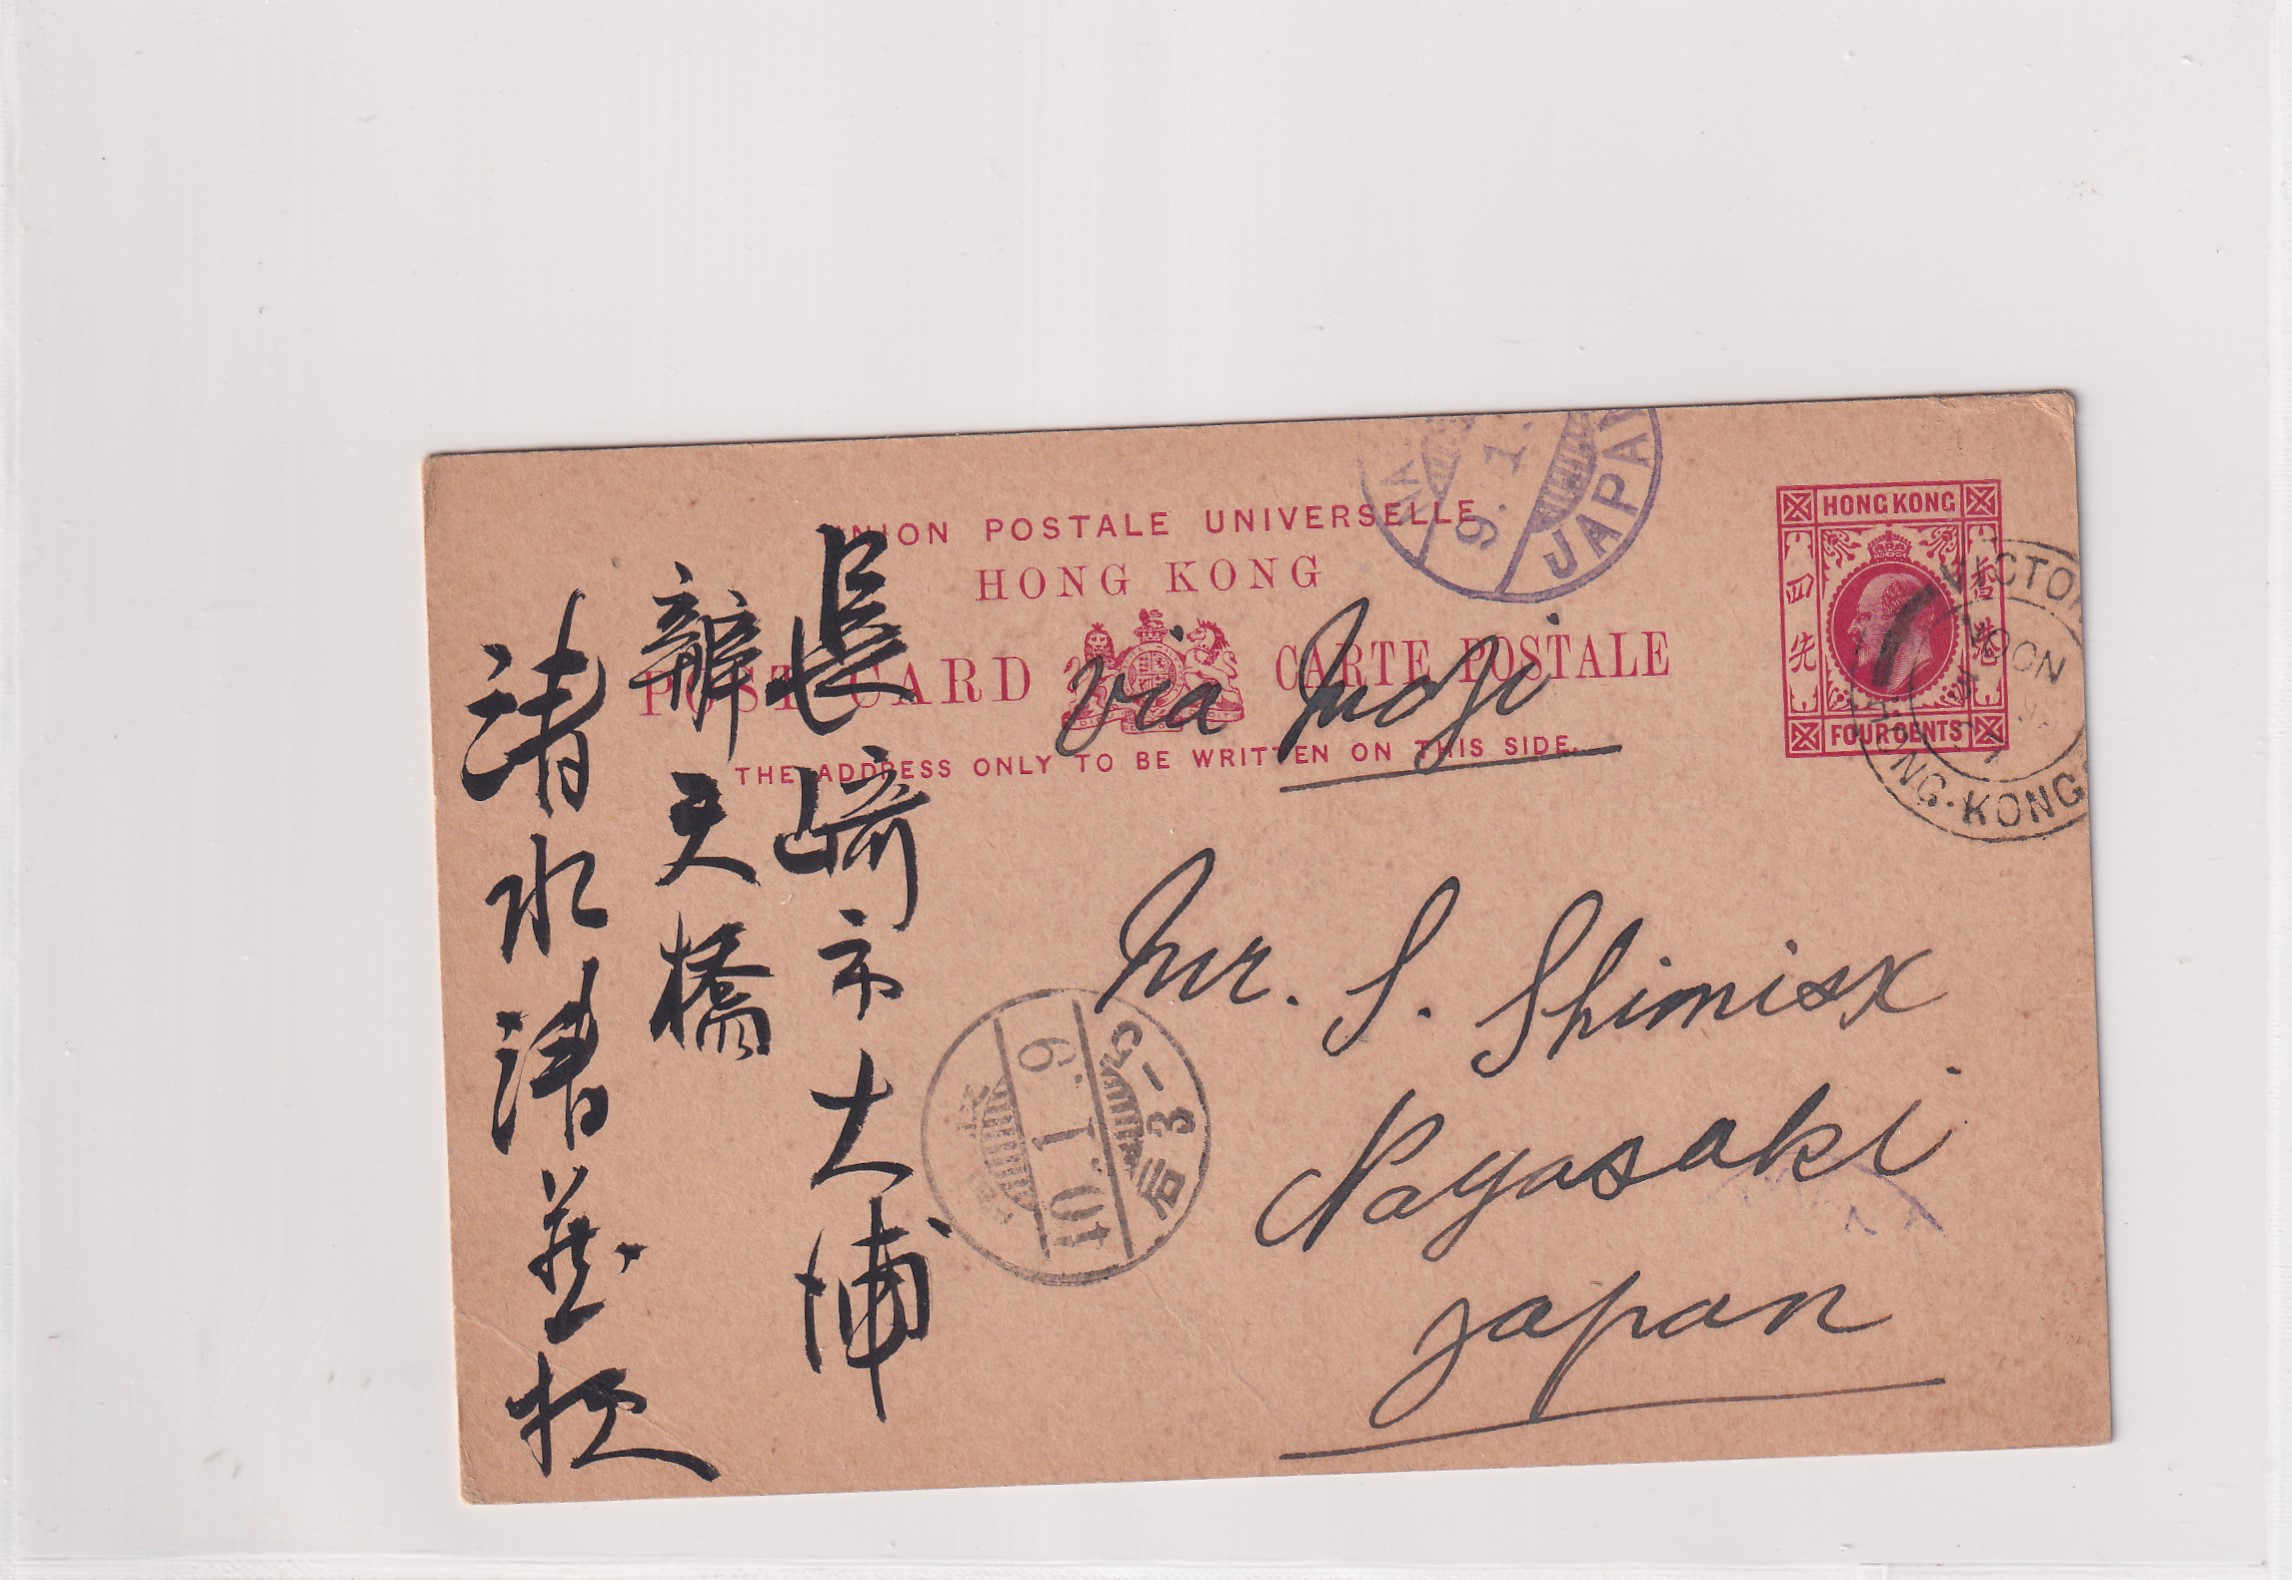 UNION POSTALE UNIVERSELLE
HONG KONG
POST CARD CARTE POSTALE
THE ADDRESS ONLY TO BE WRITTEN ON THIS SIDE.
HONG KONG
四先
香港
FOUR CENTS
VICTO
NOON
HONG-KONG
9. 1.
JAPAN
via Moji
Mr. S. Shimisx
Nagasaki
Japan
長崎市大浦
辨天橋
清水清
6. 1. 10
3